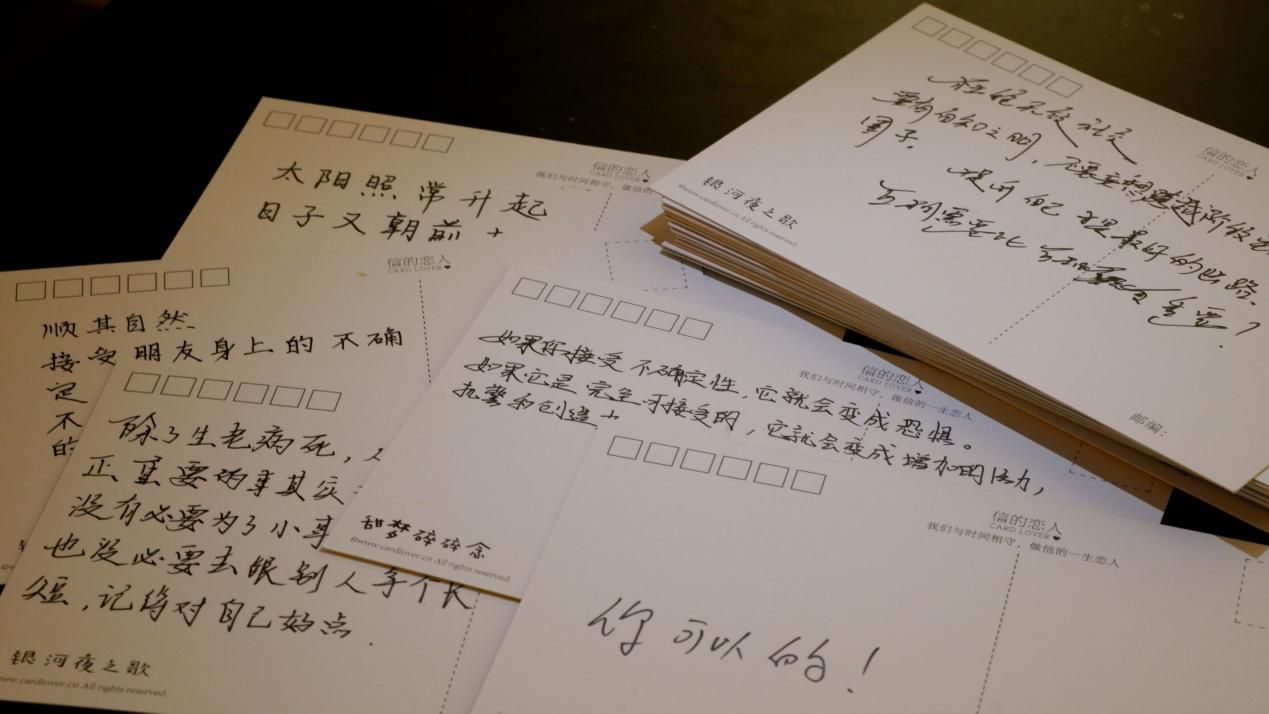 太阳照常升起
日子又朝前
信的恋人
CARD LOVER
我们与时间相守,做信的
拒绝无效社交
要有自知之明,不要妄想
圈子.
提升自己才是最好的出路.
信的恋人
CARD LOVER
银河夜之歌
©www.cardlover.cn All rights reserved.
邮编:
顺其自然
接受朋友身上的不确
定
不
的
信的恋人
CARD LOVER
如果你接受不确定性,它就会变成恐惧。
如果它是完全可接受的,它就会变成增加的活力,
和创造
信的恋人
CARD LOVER
我们与时间相守,做信的一生恋人
甜梦碎碎念
©www.cardlover.cn All rights reserved.
除了生老病死,
正重要的事其实
没有必要为了小事
也没必要去跟别人争个长
短,记得对自己好点.
银河夜之歌
www.cardlover.cn All rights reserved.
你可以的!
信的恋人
CARD LOVER
我们与时间相守,做信的一生恋人